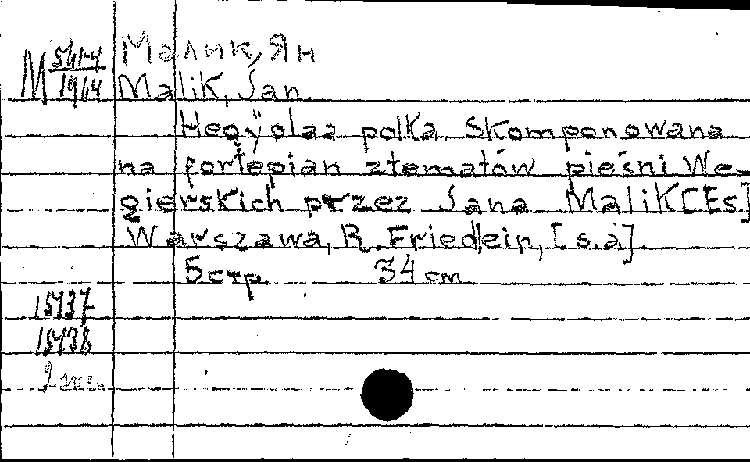 M 5414/1964 Малик, Ян
Malik, Jan
Hegÿolaa polka. Skomponowana
na fortepian ztematów pieśni We-
gierskich przez Jana Malik [Es.]
Warszawa, R. Friedlein, [s.a].
5 стр. 34 cm
15437
15438
2 экз.